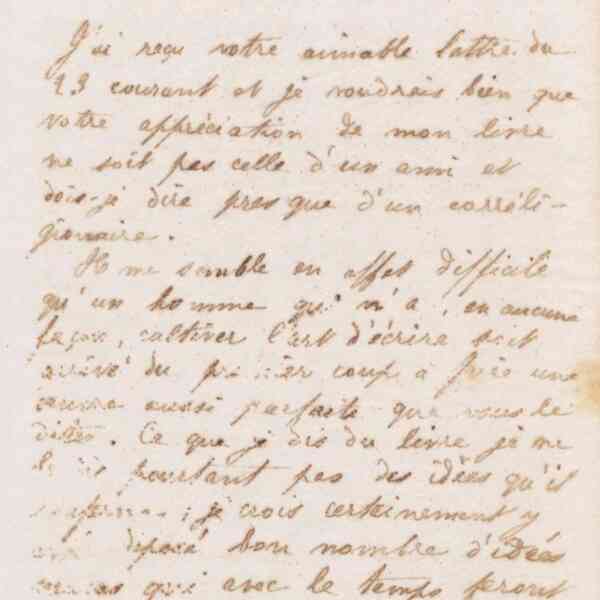 J'ai reçu votre aimable lettre du
23 courant et je voudrais bien que
votre appréciation de mon livre
ne soit pas celle d'un ami et
dois-je dire presque d'un corréli-
gionnaire.
Il me semble en effet difficile
qu'un homme qui n'a, en aucune
façon, cultiver l'art d'écrire soit
arrivé du premier coup a faire une
œuvre aussi parfaite que vous le
dites. Ce que je dis du livre je ne
le dis pourtant pas des idées qu'il
renferme ; je crois certainement y
avoir déposé bon nombre d'idées
qui avec le temps feront